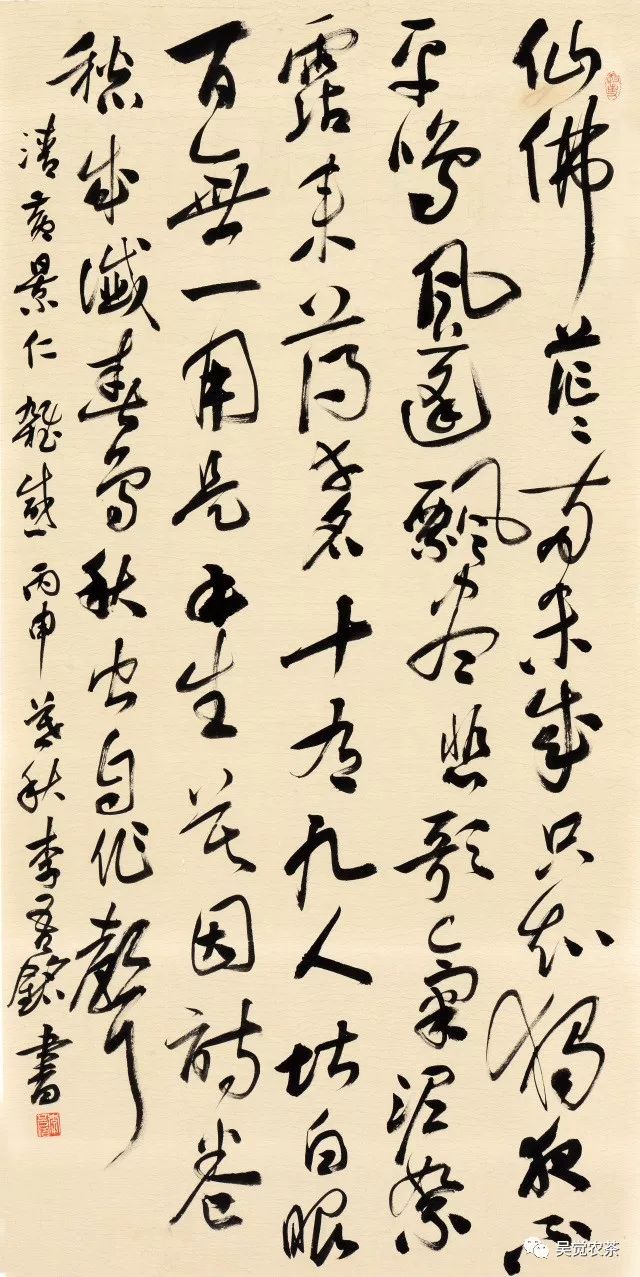 仙佛茫〻兩未成只知獨夜不
平鳴風蓬飄盡悲歌氣泥絮
霑來薄倖名十有九人堪白眼
百無一用是書生莫因詩卷
愁成讖春鳥秋虫自作聲
清黃景仁雜感丙申暮秋李吾銘書
吴觉农茶